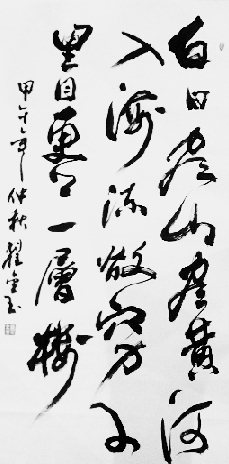 白日依山盡黄河
入海流欲窮千
里目更上一層樓
甲午年仲秋